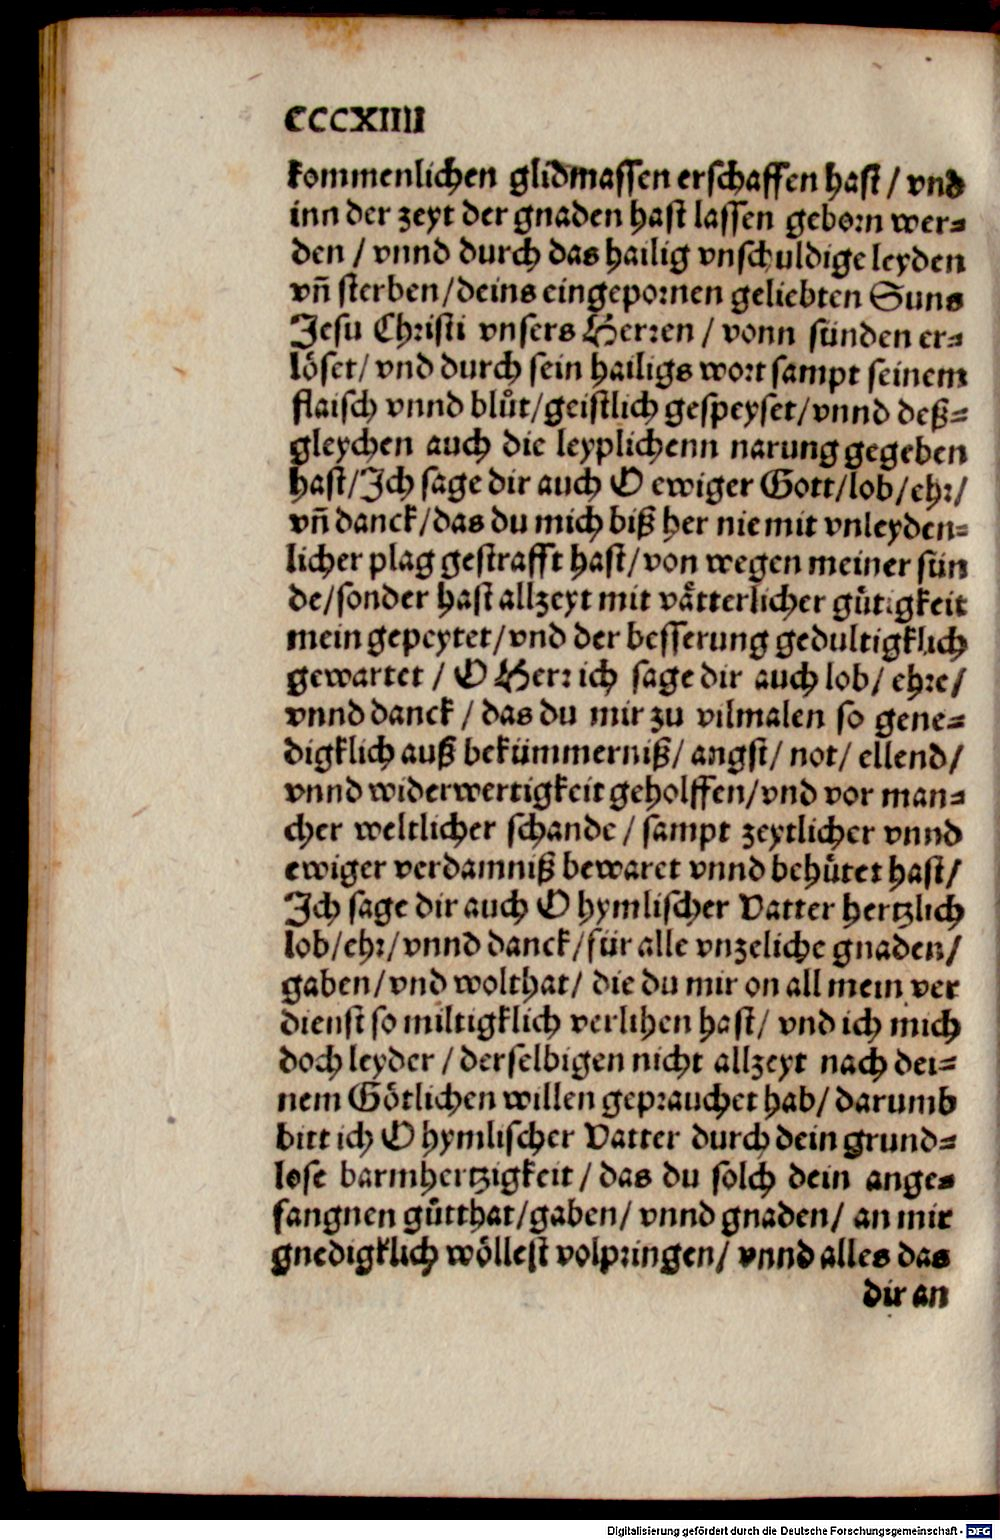 CCCXIIII
kommenlichen glidmassen erschaffen hast / vnd
inn der zeyt der gnaden hast lassen geborn wer=
den / vnnd durch das hailig vnschuldige leyden
vñ sterben / deins eingepornen geliebten Suns
Jesu Christi vnsers Herren / vonn sünden er=
löset / vnd durch sein hailigs wort sampt seinem
flaisch vnnd blůt / geistlich gespeyset / vnnd deß=
gleychen auch die leyplichenn narung gegeben
hast / Ich sage dir auch O ewiger Gott / lob / ehr /
vñ danck / das du mich biß her nie mit vnleyden=
licher plag gestrafft hast / von wegen meiner sün
de / sonder hast allzeyt mit vätterlicher gütigkeit
mein gepeytet / vnd der besserung gedultigklich
gewartet / O Herr ich sage dir auch lob / ehre /
vnnd danck / das du mir zu vilmalen so gene=
digklich auß bekümmerniß / angst / not / ellend /
vnnd widerwertigkeit geholffen / vnd vor man=
cher weltlicher schande / sampt zeytlicher vnnd
ewiger verdamniß bewaret vnnd behütet hast /
Ich sage dir auch O hymlischer Vatter hertzlich
lob / ehr / vnnd danck / für alle vnzeliche gnaden /
gaben / vnd wolthat / die du mir on all mein ver
dienst so miltigklich verlihen hast / vnd ich mich
doch leyder / derselbigen nicht allzeyt nach dei=
nem Götlichen willen geprauchet hab / darumb
bitt ich O hymlischer Vatter durch dein grund=
lose barmhertzigkeit / das du solch dein ange=
fangnen gütthat / gaben / vnnd gnaden / an mir
gnedigklich wöllest volpringen / vnnd alles das
dir an
Digitalisierung gefördert durch die Deutsche Forschungsgemeinschaft - DFG